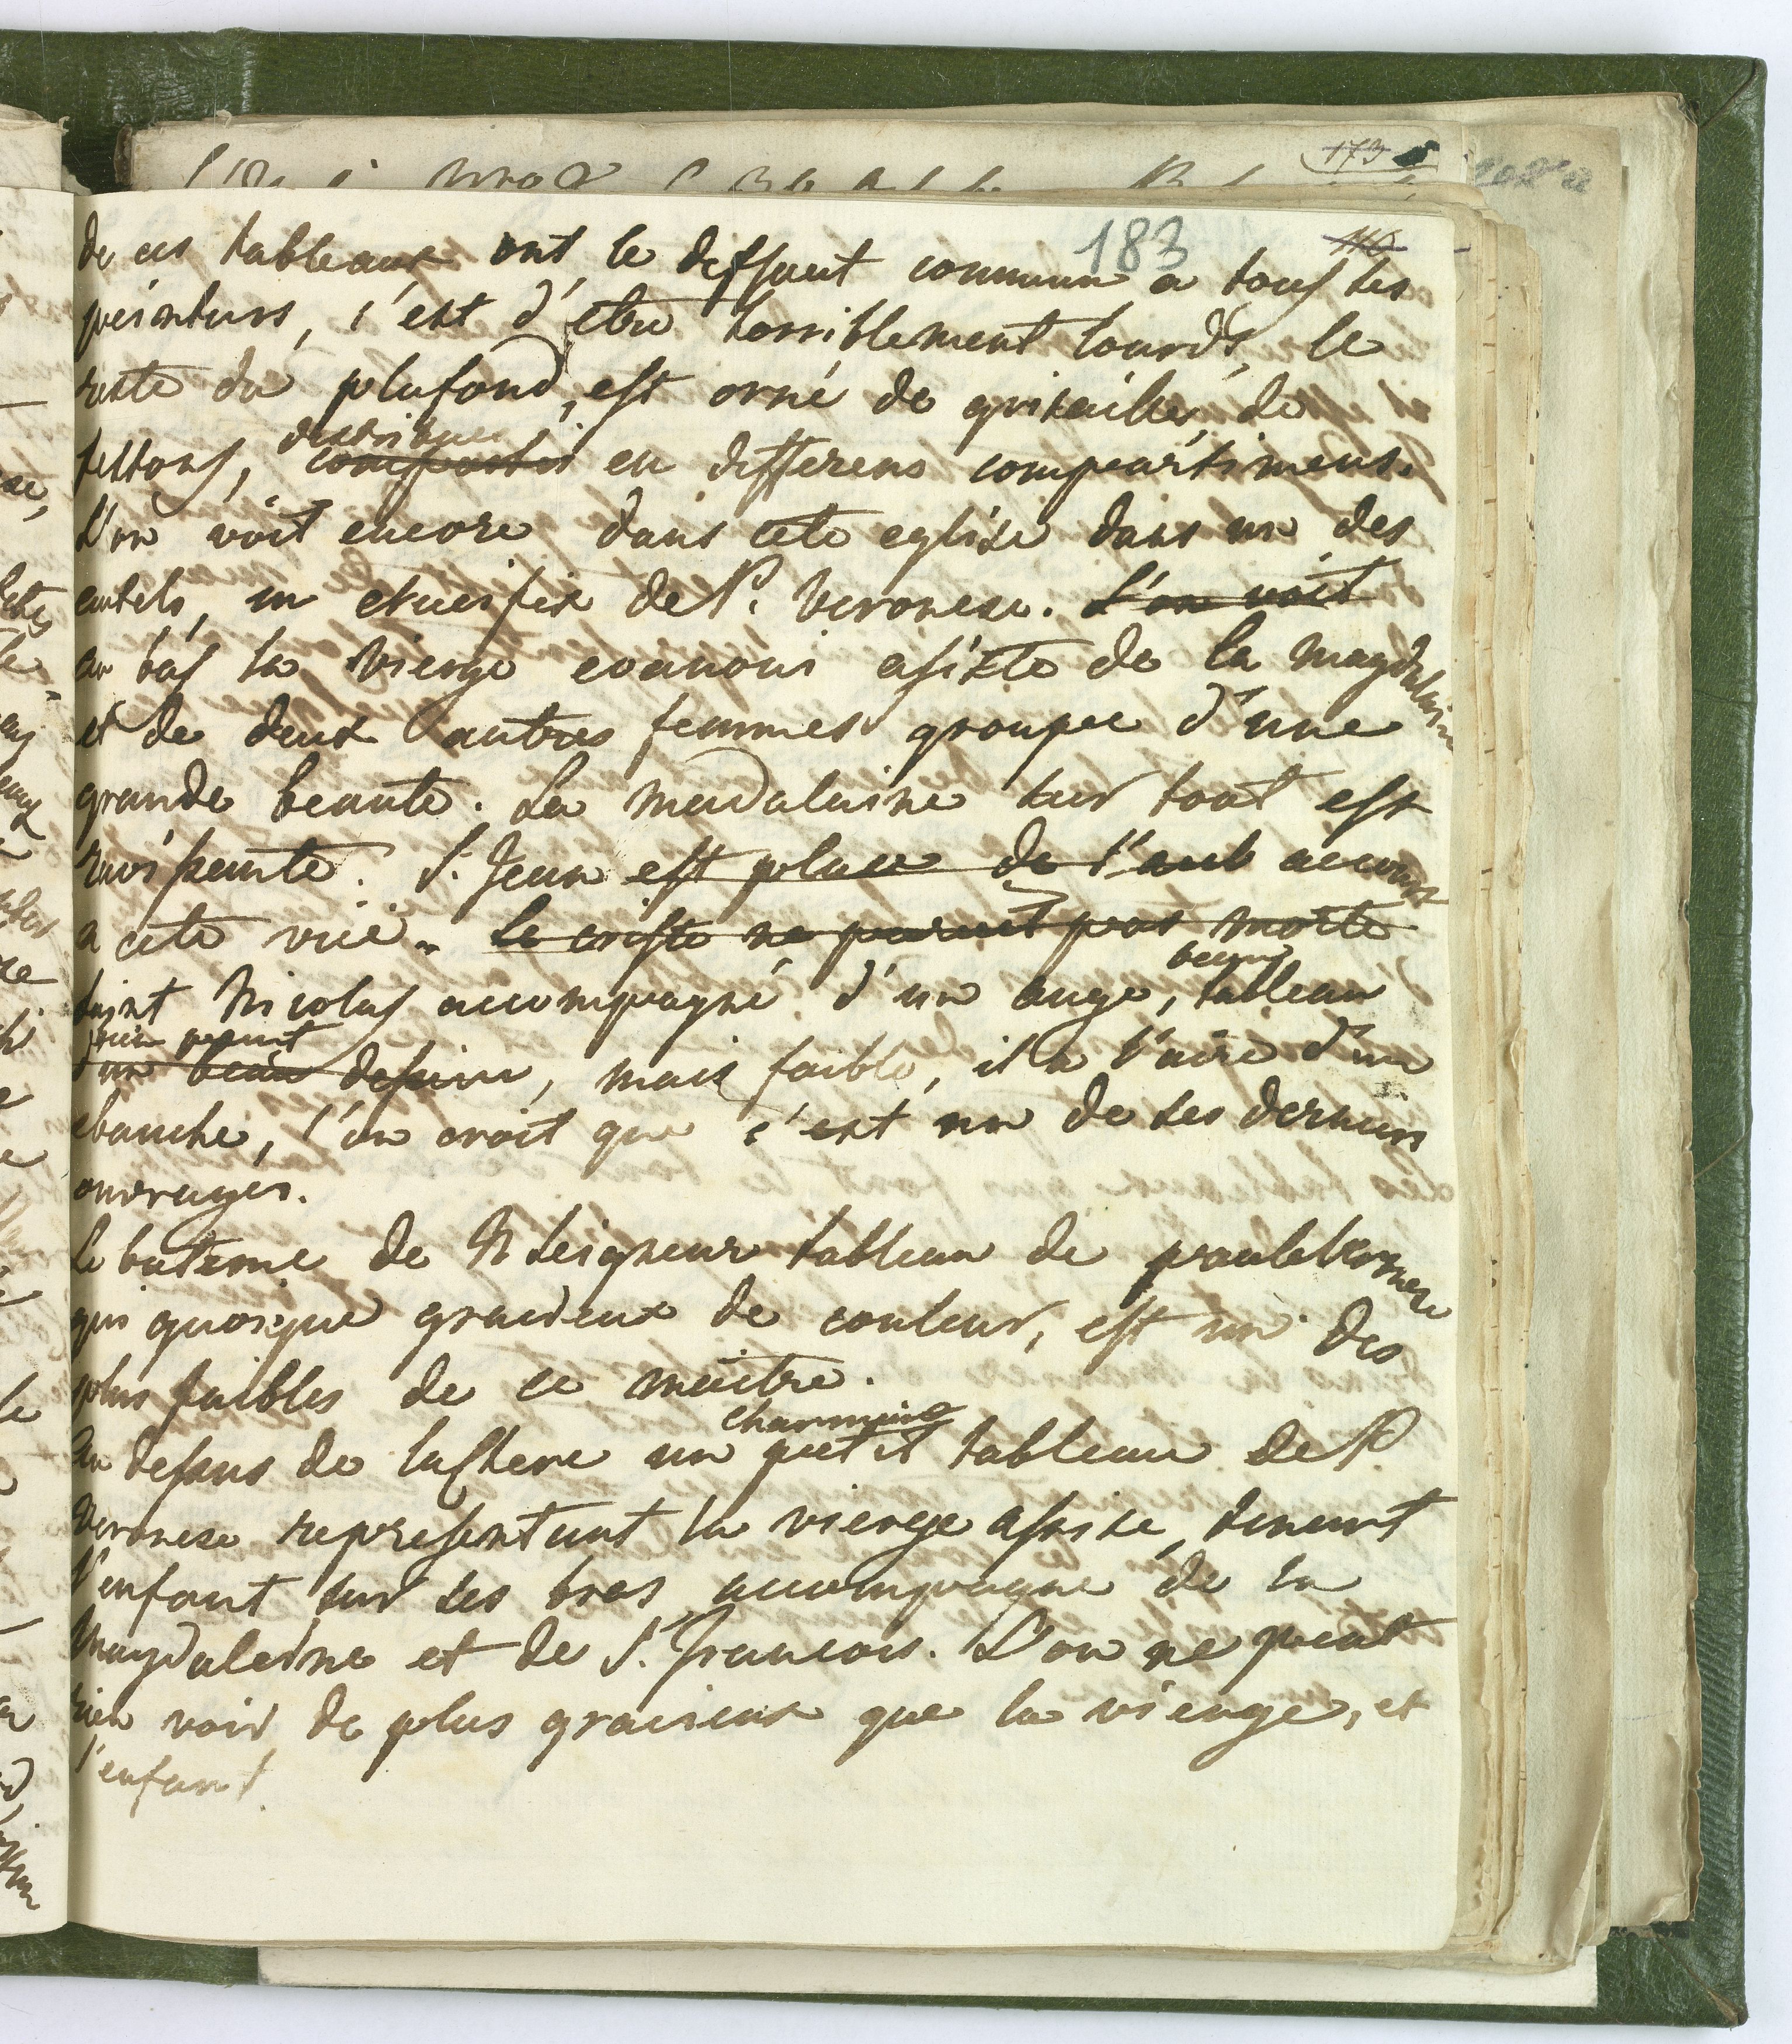 183
de ces tableaux ont le deffaut commun a tous ses
peinturs, c'est d'etre terriblement lourds, le
reste du plafond, est orné de grisailles, de
festons, distribues composter en differens compartimens.
L'on voit encore dans cete eglise dans un des
autels, un crucifix de P. Veronese. L'on voit
au bas la vierge evanoui asiste de la magdelaine
et de deux autres femmes groupee d'une
grande beaute. La madalaine sur tout est
ravissante. S. Jean est place de l'aut accourt
a cete vüe. Le criste ne parait pas morte
saint Nicolas accompagné d'un ange, beau tableau
bien peint d'un beau dessein, mais faible, il a l'aire d'un
ebauche, l'on croit que c'est un de ses derniers
ouvrages.
Le bateme de N seigneur tableau de paule Veronese
qui quoique gracieux de couleur, est un des
plus faibles de ce maitre.
Au dessus de la chere un charmant petit tableau de P.
Veronese representant la vierge assise, tenant
l'enfant sur ses bras accompagne de la
Magdaleine et de S. Francois. L'on ne peut
rien voir de plus graisieux que la vierge, et
l'enfant.